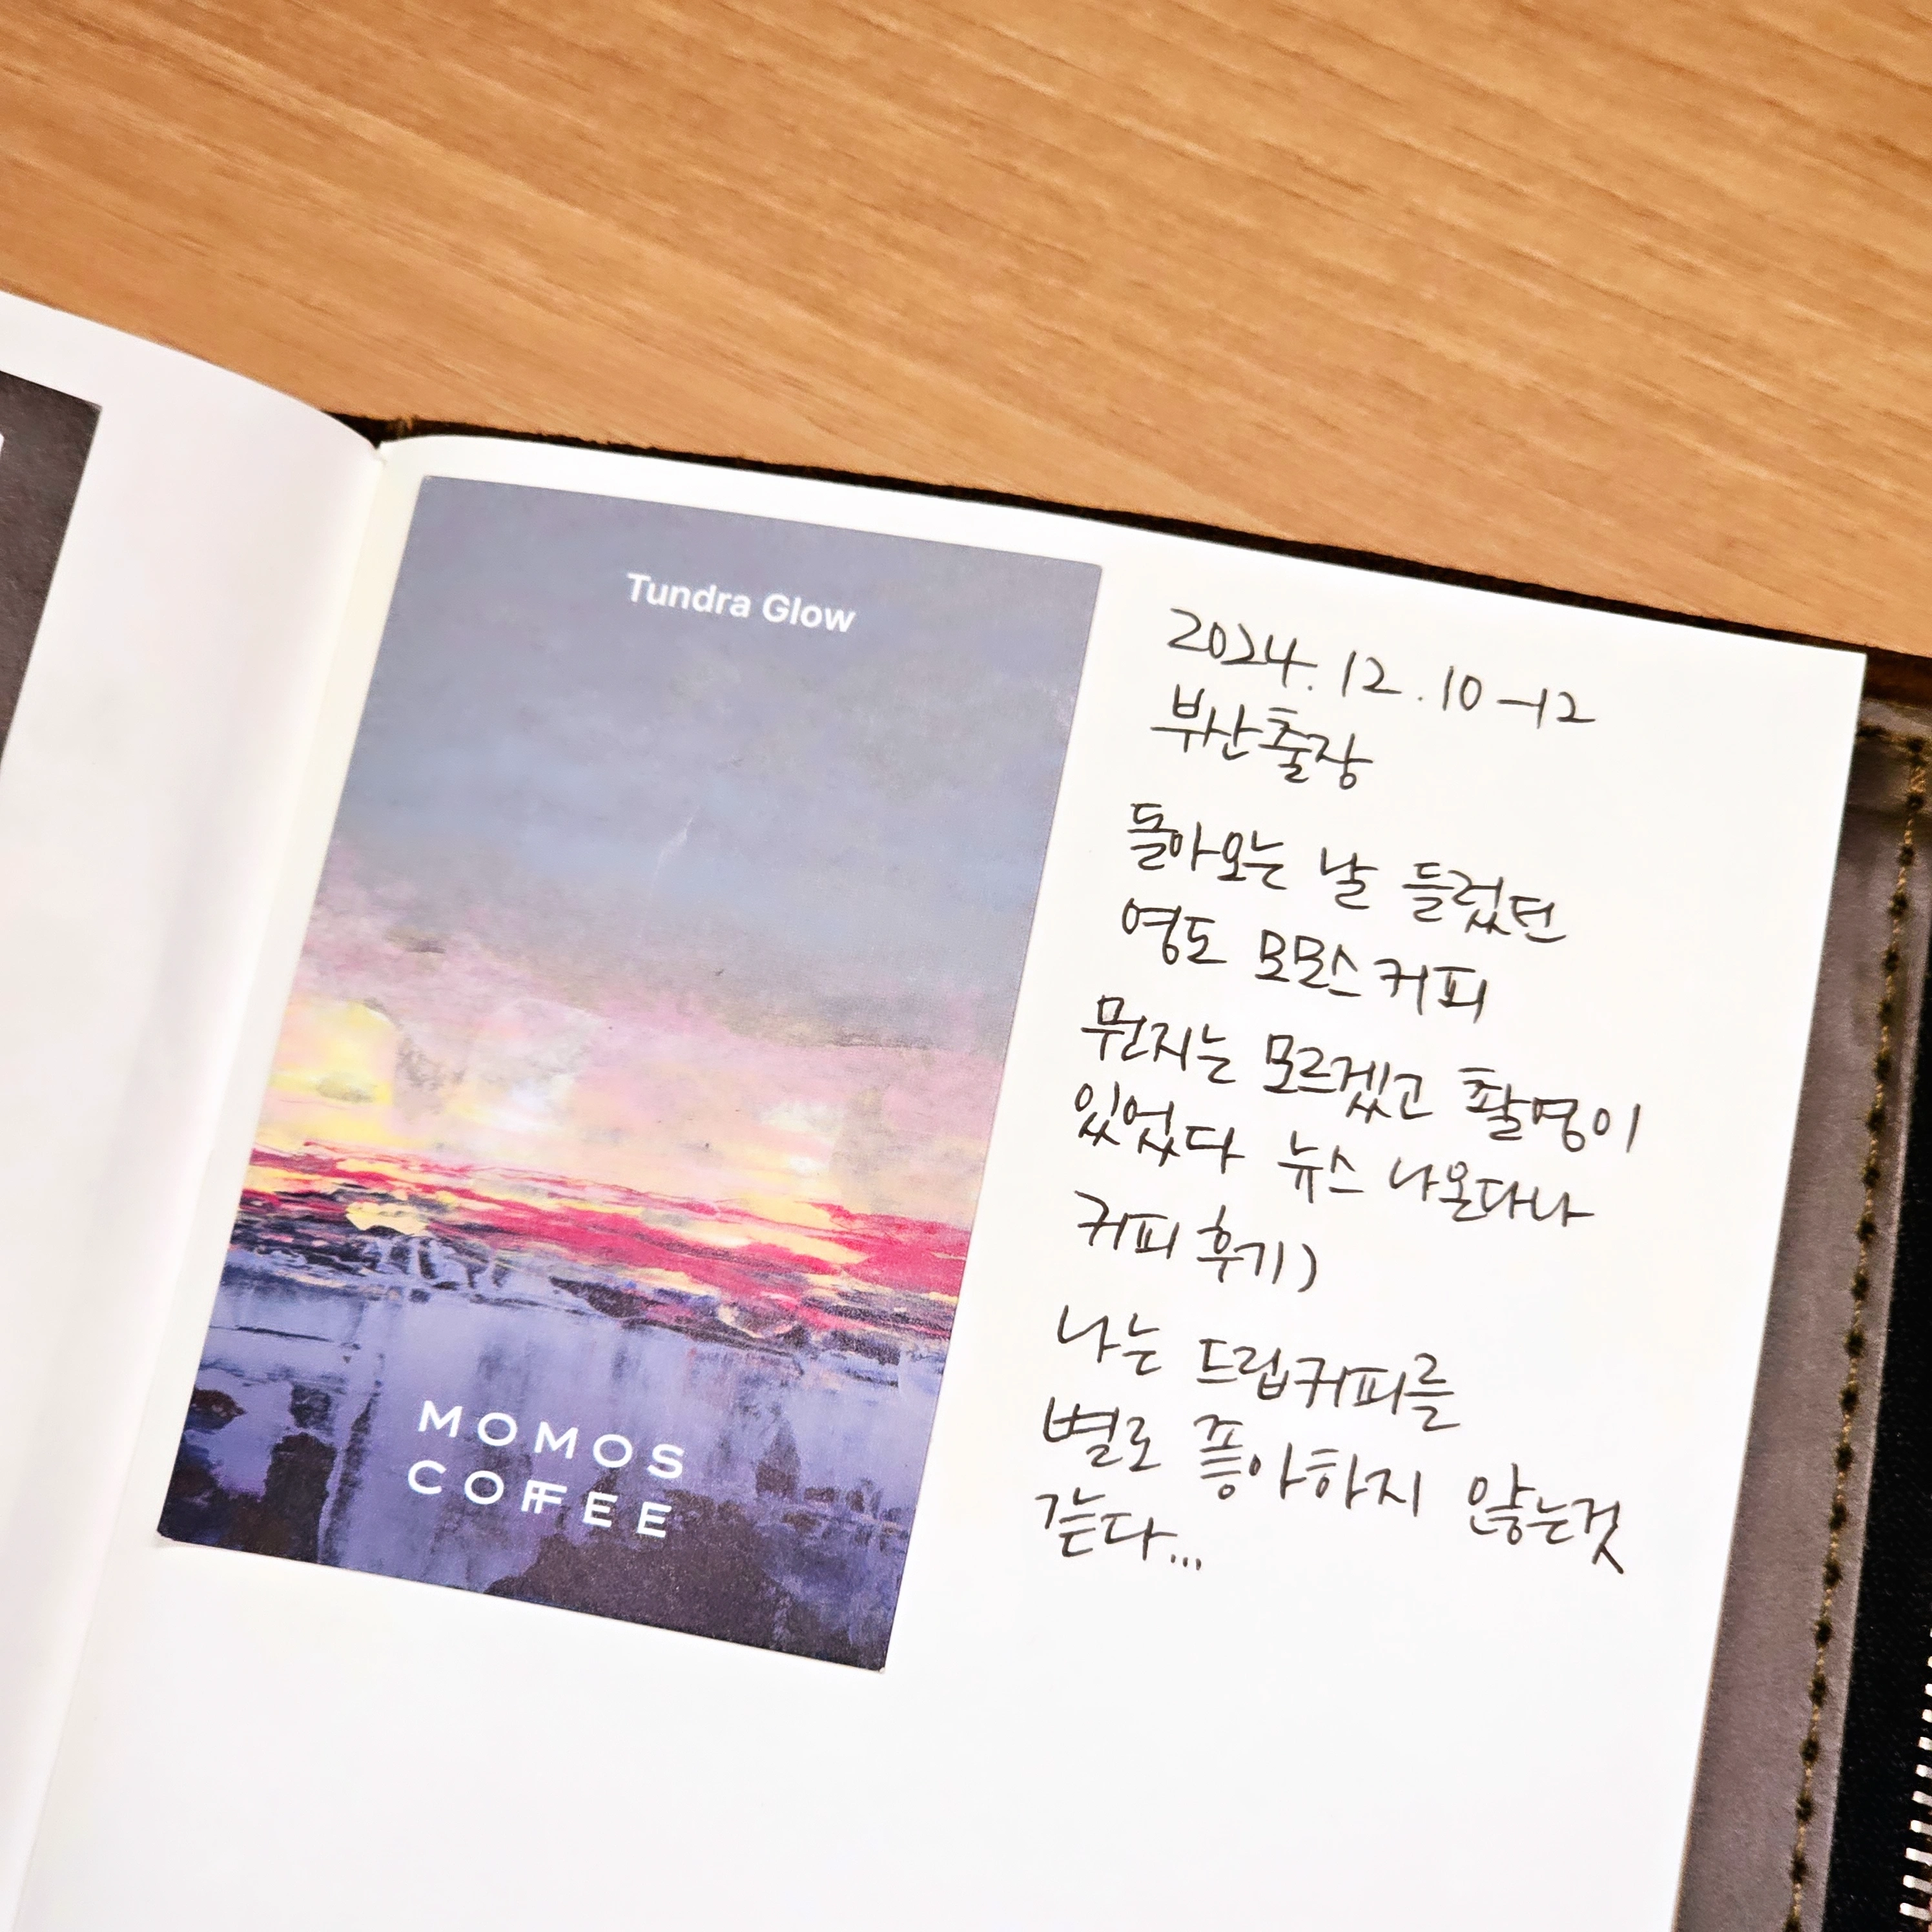 Tundra Glow
MOMOS
COFFEE
2024.12.10-12
부산출장
돌아오는 날 들렀던
영도 모모스커피
뭔지는 모르겠고 촬영이
있었다 뉴스 나온다나
커피 후기)
나는 드립커피를
별로 좋아하지 않는것
같다...